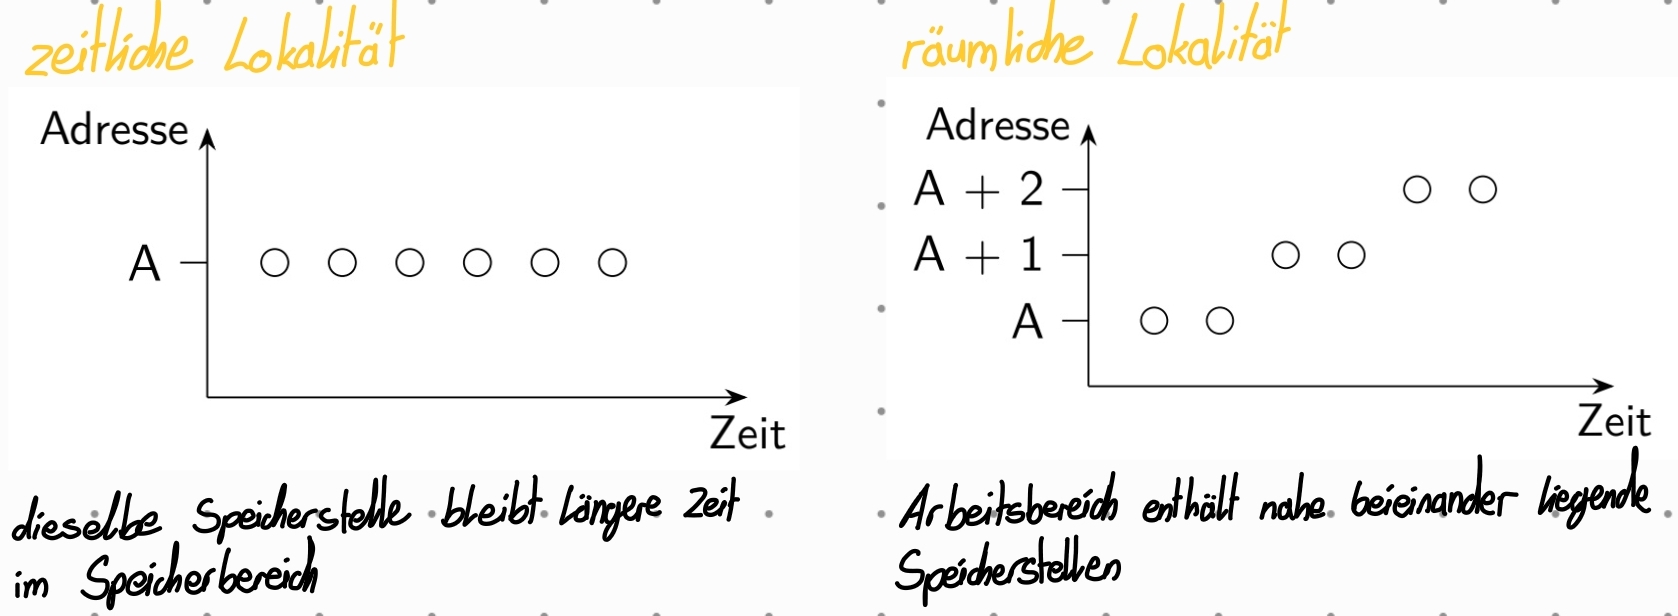 zeitliche Lokalität
Adresse
A
Zeit
dieselbe Speicherstelle bleibt längere Zeit
im Speicherbereich
räumliche Lokalität
Adresse
A + 2
A + 1
A
Zeit
Arbeitsbereich enthält nahe beieinander liegende
Speicherstellen